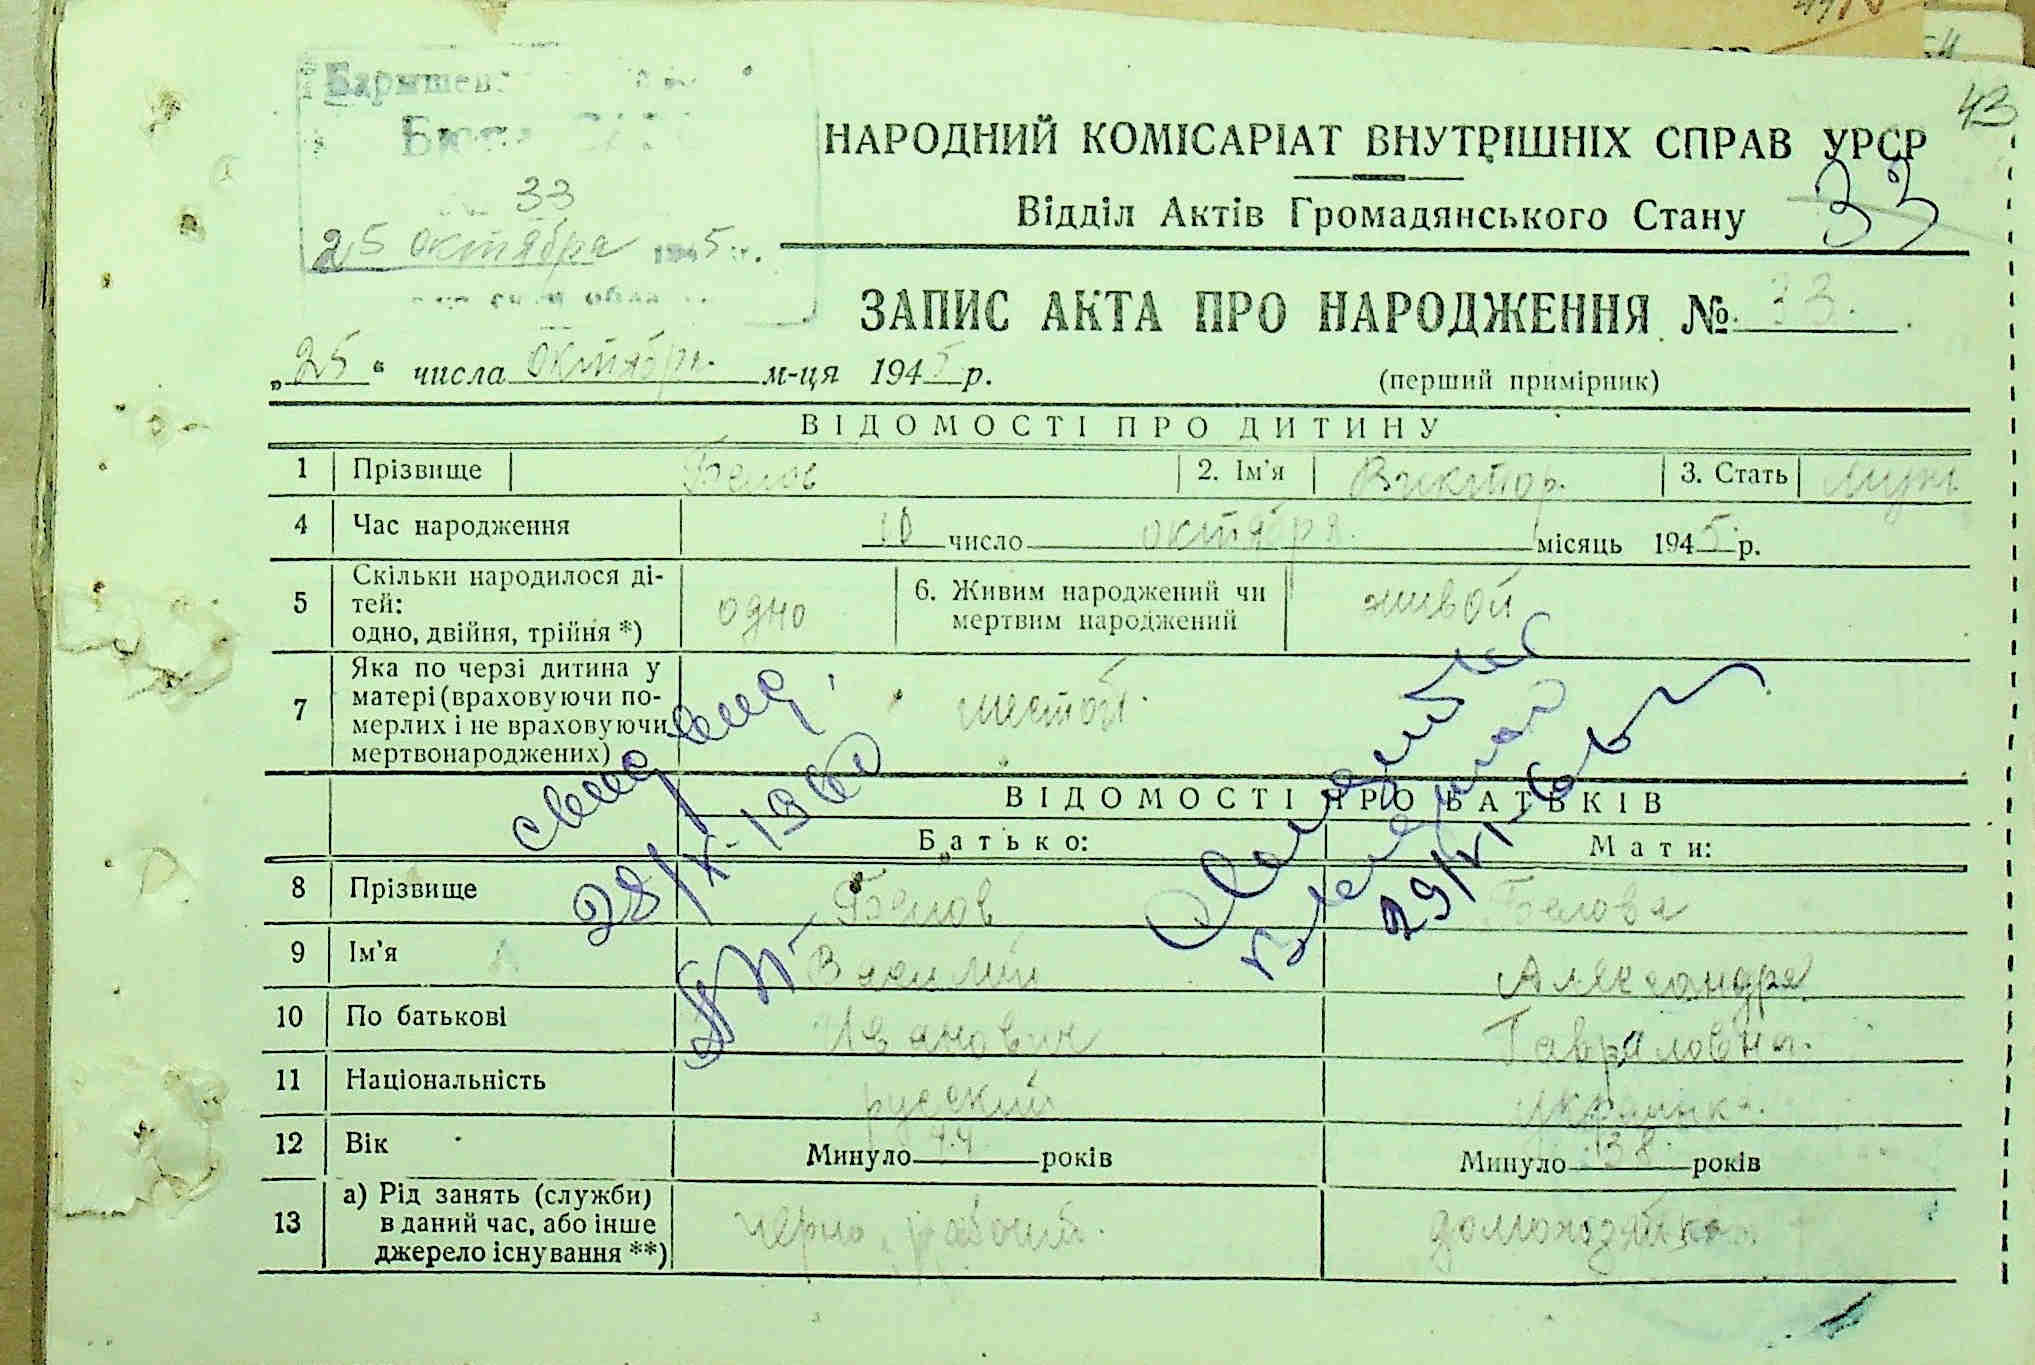 43
Барышев
Бюро
33
25 октября 1945 г.
НАРОДНИЙ КОМІСАРІАТ ВНУТРІШНІХ СПРАВ УРСР
Відділ Актів Громадянського Стану
33
ЗАПИС АКТА ПРО НАРОДЖЕННЯ № 33.
„25“ числа октября м-ця 1945 р.
(перший примірник)
ВІДОМОСТІ ПРО ДИТИНУ
1 Прізвище Белов 2. Ім'я Виктор. 3. Стать муж
4 Час народження 10 число октября. місяць 1945 р.
5 Скільки народилося ді-
тей:
одно, двійня, трійня *) одно 6. Живим народжений чи
мертвим народжений живой
7 Яка по черзі дитина у
матері (враховуючи по-
мерлих і не враховуючи
мертвонароджених) шестой.
ВІДОМОСТІ ПРО БАТЬКІВ
Батько: Мати:
8 Прізвище Белов Белова
9 Ім'я Василий Александра
10 По батькові Иванович Гавриловна.
11 Національність русский украинка.
12 Вік Минуло 44 років Минуло 38 років
13 а) Рід занять (служби)
в даний час, або інше
джерело існування **) черно. рабочий. домохозяйка
28/X-1960
29/VI-